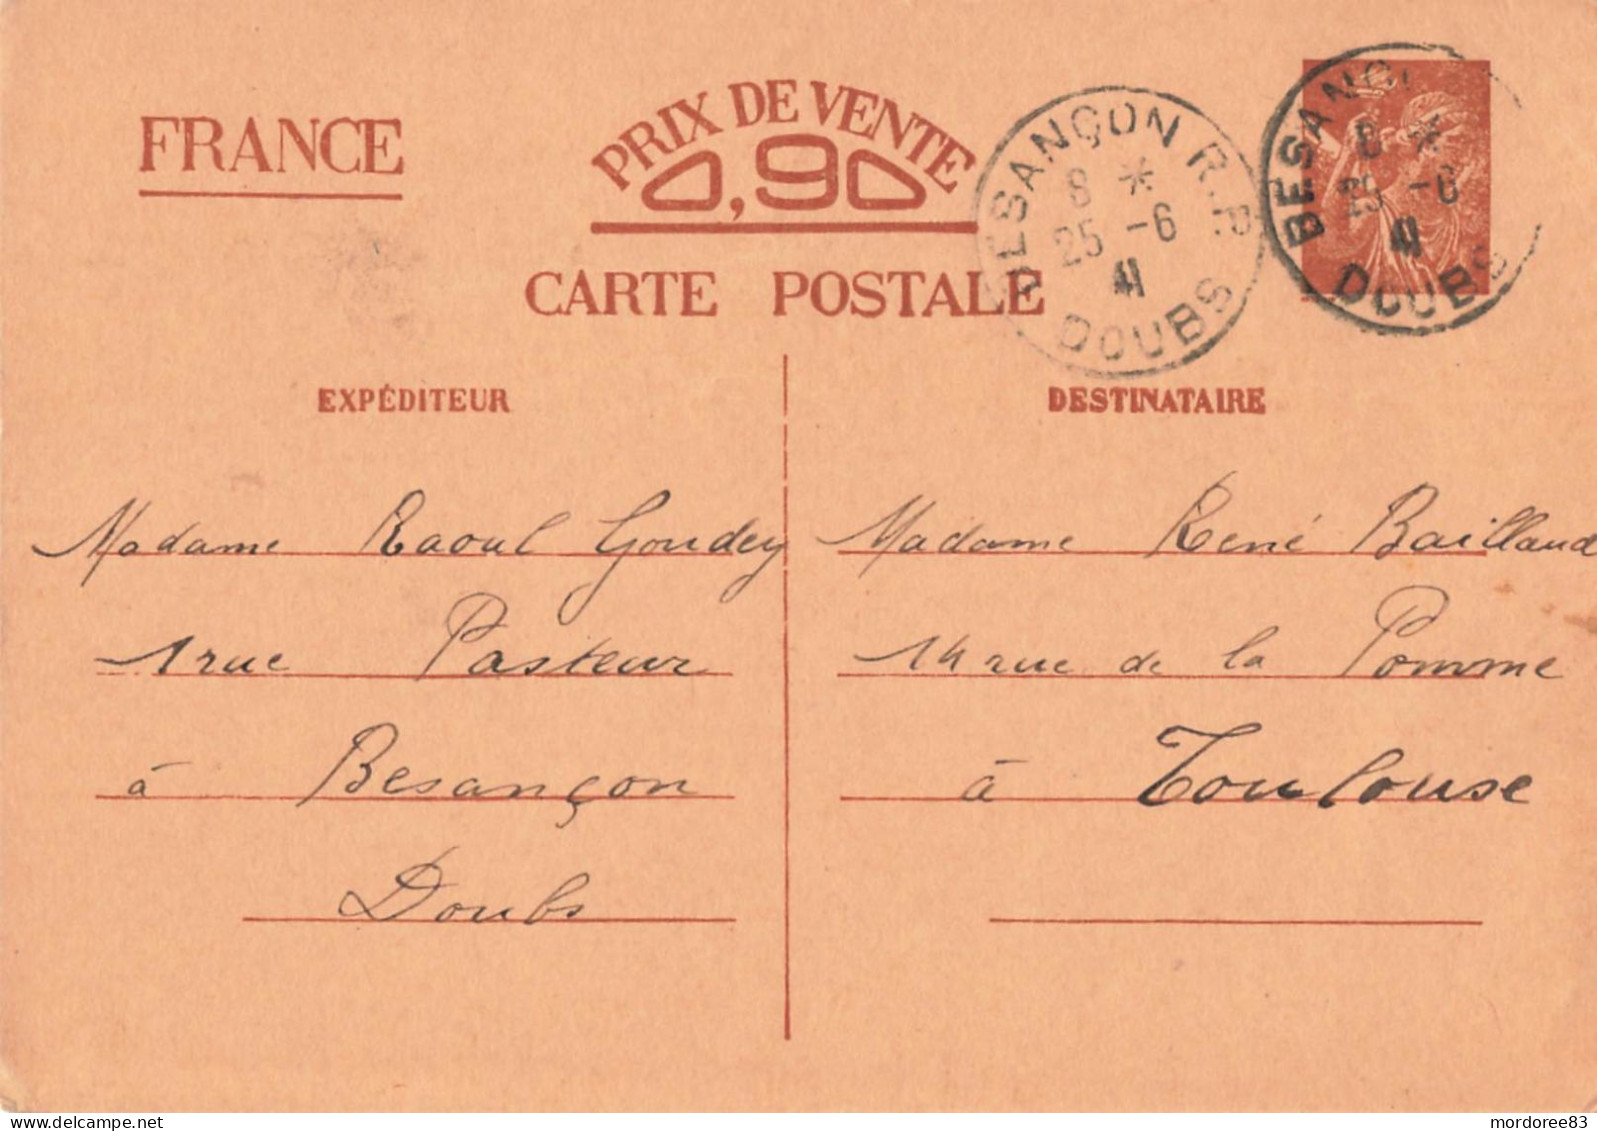 FRANCE
PRIX DE VENTE
0,90
CARTE POSTALE
BESANÇON R.P.
8 *
25 -6
41
DOUBS
BESANÇ
8 *
25 -6
41
DOUBS
EXPÉDITEUR
Madame Raoul Goudey
1 rue Pasteur
à Besançon
Doubs
DESTINATAIRE
Madame René Baillaud
14 rue de la Pomme
à Toulouse
mordoree83